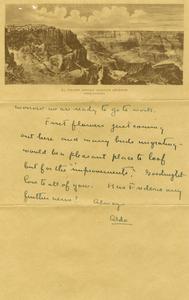 EL TOVAR HOTEL, GRAND CANYON, ARIZONA
morrow we are ready to go to work.
First flowers just coming
out here and many birds migrating -
would be a pleasant place to loaf
but for the "improvements". Goodnight.
Love to all of you. Has Frederic any
further news? Always
Aldo